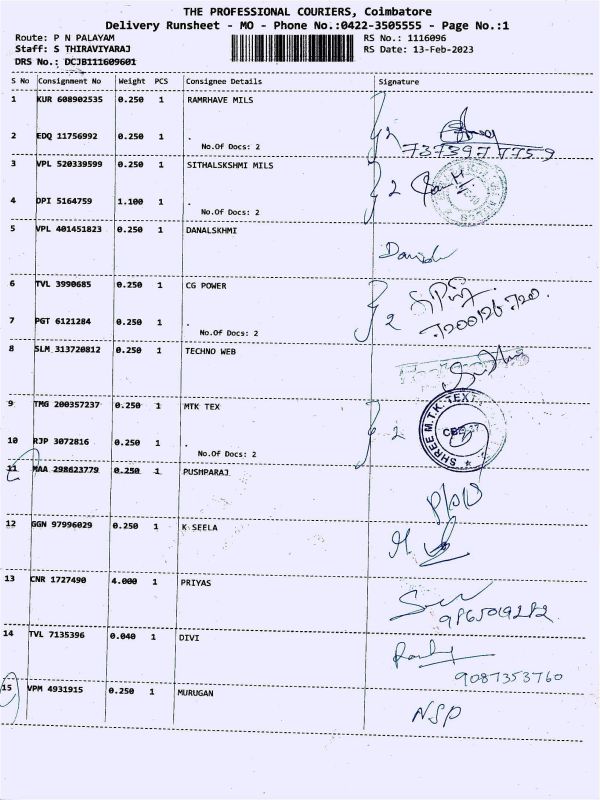 THE PROFESSIONAL COURIERS, Coimbatore
Delivery Runsheet - MO - Phone No.:0422-3505555 - Page No.:1
Route: P N PALAYAM RS No.: 1116096
Staff: S THIRAVIYARAJ RS Date: 13-Feb-2023
DRS No.: DCJB111609601
S No Consignment No Weight PCS Consignee Details Signature
1 KUR 608902535 0.250 1 RAMRHAVE MILS
2 EDQ 11756992 0.250 1 . 2
No.Of Docs: 2 7373977759
3 VPL 520339599 0.250 1 SITHALSKSHMI MILS
2
4 DPI 5164759 1.100 1 .
No.Of Docs: 2
5 VPL 401451823 0.250 1 DANALSKHMI
6 TVL 3990685 0.250 1 CG POWER
7 PGT 6121284 0.250 1 . 2 7200126720
No.Of Docs: 2
8 SLM 313720812 0.250 1 TECHNO WEB
9 TMG 200357237 0.250 1 MTK TEX SHREE M.T.K. TEXT
2 CBE
10 RJP 3072816 0.250 1 .
No.Of Docs: 2
11 MAA 298623779 0.250 1 PUSHPARAJ
12 GGN 97996029 0.250 1 K SEELA
13 CNR 1727490 4.000 1 PRIYAS
14 TVL 7135396 0.040 1 DIVI
9087353760
15 VPM 4931915 0.250 1 MURUGAN
NSP